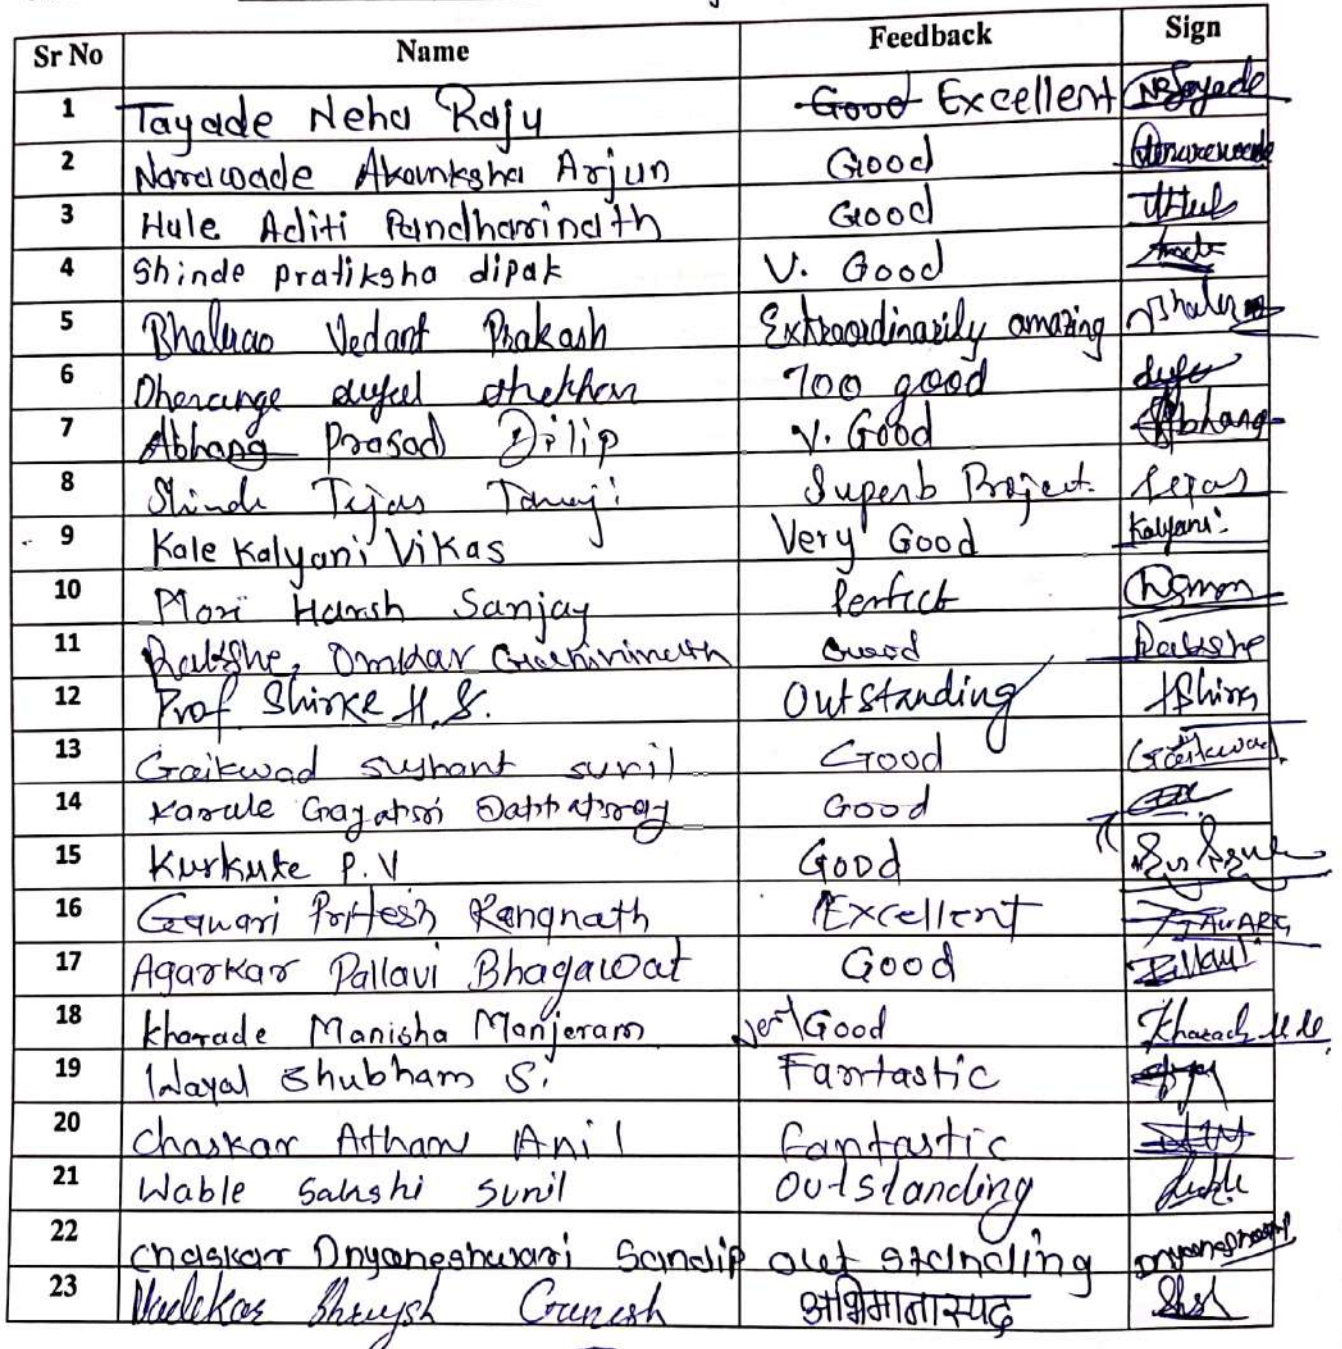 Sr No Name Feedback Sign
1 Tayade Neha Raju Good Excellent NRTayade
2 Narawade Akanksha Arjun Good
3 Hule Aditi Pandharinath Good AHule
4 Shinde pratiksha dipak V. Good
5 Bhalerao Vedant Prakash Extraordinarily amazing
6 Dherange Too good
7 Abhang Prasad Dilip V. Good Abhang
8 Shinde Tejas Tanaji Superb Project. Tejas
9 Kale Kalyani Vikas Very Good Kalyani
10 More Harsh Sanjay Perfect
11 Rakshe, Omkar Good Rakshe
12 Prof Shirke H.S. Outstanding
13 Gaikwad sushant sunil Good Gaikwad
14 Karale Gayatri Dattatray Good
15 Kurkute P.V Good
16 Gawari Pritesh Rangnath Excellent
17 Agarkar Pallavi Bhagawat Good
18 Kharade Manisha Manjeram very Good
19 Wayal Shubham S. Fantastic
20 Chaskar Atharv Anil fantastic
21 Wable Sakshi Sunil Outstanding
22 Chaskar Dnyaneshwari Sandip out standing
23 Ganesh अभिमानास्पद